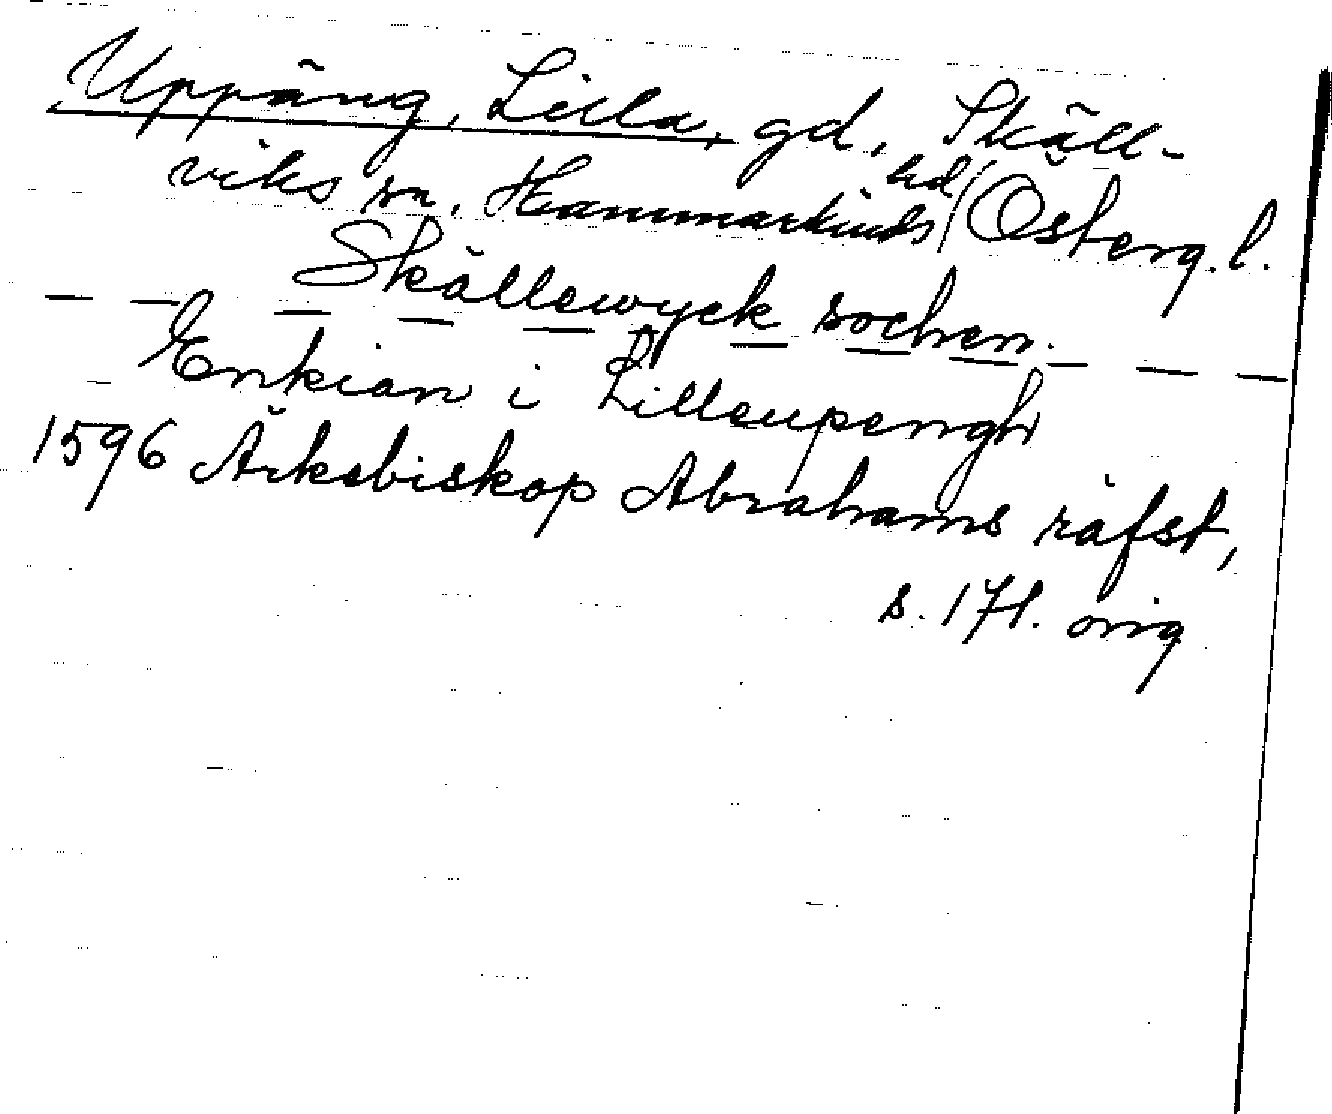 Uppäng, Lilla, gd, Skäll-
viks sn, Hammarkinds hd, Österg. l.
Skällewyck sochen.
Enkian i Lilleupengh
1596 Ärkebiskop Abrahams räfst,
s. 171. orig